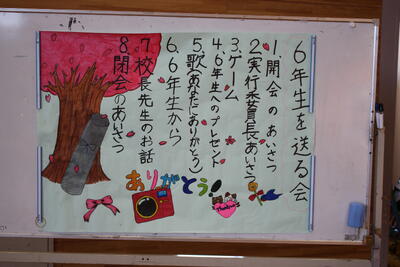 ６年生を送る会
1.開会のあいさつ
2.実行委員長あいさつ
3.ゲーム
4.６年生へのプレゼント
5.歌(あなたにありがとう)
6.６年生から
7.校長先生のお話
8.閉会のあいさつ
ありがとう!